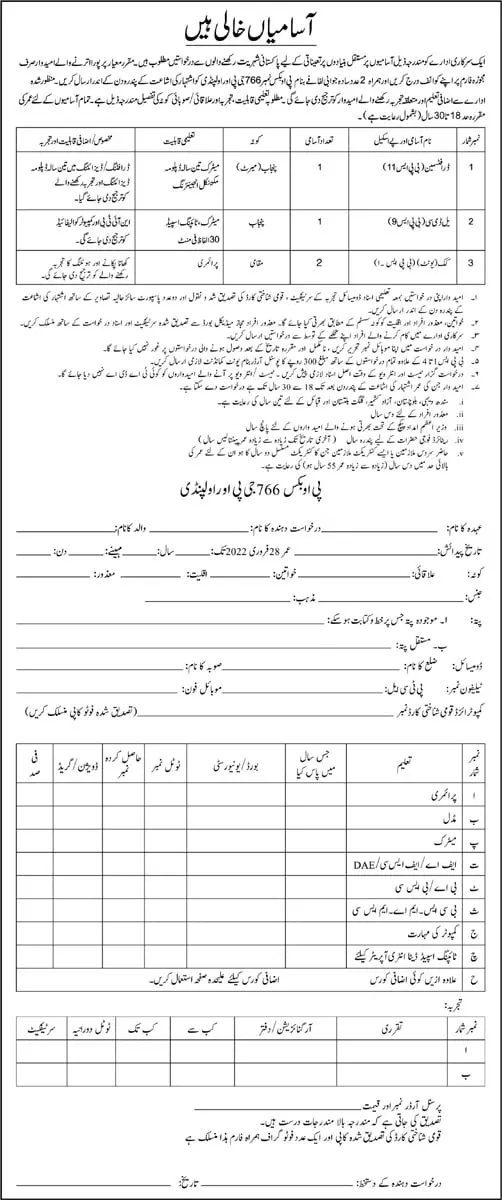 آسامیاں خالی ہیں
ایک سرکاری ادارے کو مندرجہ ذیل آسامیوں پر مستقل بنیادوں پر تعیناتی کے لیے پاکستانی شہریت رکھنے والوں سے درخواستیں مطلوب ہیں۔ مقررہ معیار پر پورا اترنے والے امیدوار صرف
مجوزہ فارم پر اپنے کوائف درج کریں اور ہمراہ 2 عدد سادہ جوابی لفافے بنام پی او بکس نمبر 766 جی پی او راولپنڈی کو اشتہار کی اشاعت کے پندرہ دن کے اندر ارسال کریں۔ منظور شدہ
ادارے سے اضافی تعلیم اور متعلقہ تجربہ رکھنے والے امیدوار کو ترجیح دی جائے گی۔ مطلوبہ تعلیمی قابلیت، تجربہ اور علاقائی/صوبائی کوٹہ کی تفصیل مندرجہ ذیل ہے۔ تمام آسامیوں کے لئے عمر کی
مقررہ حد 18 تا 30 سال (بشمول رعایت ہے)۔
نمبر شمار نام آسامی اور پے اسکیل تعداد آسامی کوٹہ تعلیمی قابلیت مخصوص/اضافی قابلیت اور تجربہ
1 ڈرافٹسمین (بی پی ایس 11) 1 پنجاب (میرٹ) میٹرک تین سالہ ڈپلومہ مکینکل انجینئرنگ ڈرافٹنگ/ڈیزائننگ میں تین سالہ ڈپلومہ ڈیزائننگ اور تجربہ رکھنے والے کو ترجیح دی جائے گی۔
2 یل ڈی سی (بی پی ایس 9) 1 پنجاب میٹرک، ٹائپنگ اسپیڈ 30 الفاظ فی منٹ این آئی ٹی بی اور کمپیوٹر کوالیفائیڈ کو ترجیح دی جائے گی۔
3 کک (یونٹ) (بی پی ایس ۔ا) 2 مقامی پرائمری کھانا پکانے اور ہوٹلنگ کا تجربہ رکھنے والے کو ترجیح دی جائے گی۔
۱۔ امیدوار اپنی درخواستیں بمعہ تعلیمی اسناد ڈومیسائل تجربہ کے سرٹیفکیٹ، قومی شناختی کارڈ کی تصدیق شدہ نقول اور دو عدد پاسپورٹ سائز حالیہ تصاویر کے ساتھ اشتہار کی اشاعت
کے پندرہ دن کے اندر ارسال کریں۔
۲۔ خواتین، معذور افراد اور اقلیت کو کوٹہ سسٹم کے مطابق بھرتی کیا جائے گا۔ معذور افراد مجاز میڈیکل بورڈ سے تصدیق شدہ سرٹیفکیٹ اور اسناد درخواست کے ساتھ منسلک کریں۔
۳۔ سرکاری ادارے میں کام کرنے والے افراد اپنے محکمے کے توسط سے درخواستیں ارسال کریں۔
۴۔ امیدوار درخواست میں اپنا موبائل نمبر تحریر کریں، نامکمل اور مقررہ تاریخ کے بعد وصول ہونے والی درخواستوں پر غور نہیں کیا جائے گا۔
۵۔ بی پی ایس 1 تا 4 کے علاوہ تمام درخواستوں کے ساتھ مبلغ 300 روپے کا پوسٹل آرڈر بنام یونٹ کمانڈنٹ لازمی ارسال کریں۔
۶۔ درخواست گزار ٹیسٹ اور انٹرویو کے وقت اصل اسناد لازمی پیش کریں۔ ٹیسٹ/انٹرویو پر آنے والے امیدواروں کو کوئی ٹی اے ڈی اے نہیں دیا جائے گا۔
۷۔ امیدوار جن کی عمر اشتہار کی اشاعت کے پندرہ دن بعد تک 18 سے 30 سال تک ہے درخواست دے سکتا ہے۔
i. سندھ دیہی، بلوچستان، آزاد کشمیر، گلگت بلتستان اور قبائل کے لئے تین سال کی رعایت ہے۔
ii. معذور افراد کے لئے دس سال
iii. وزیر اعظم امداد پیکج کے تحت بھرتی ہونے والے امیدواروں کے لئے پانچ سال
iv. ریٹائرڈ فوجی حضرات کے لیے پندرہ سال (آخری تاریخ تک زیادہ سے زیادہ عمر پینتالیس سال)
v. حاضر سروس ملازمین یا ایسے کنٹریکٹ ملازمین جن کا کنٹریکٹ مسلسل دو سال کا ہو ان کے لئے عمر کی
بالائی حد میں دس سال (زیادہ سے زیادہ عمر 55 سال ہو) کی رعایت ہے۔
پی او بکس 766 جی پی او راولپنڈی
عہدہ کا نام: درخواست دہندہ کا نام: والد کا نام:
تاریخ پیدائش: عمر 28 فروری 2022 تک: سال: مہینے: دن:
کوٹہ: علاقائی: خواتین: اقلیت: معذور:
جنس: مذہب:
پتہ: ا۔ موجودہ پتہ جس پر خط و کتابت ہو سکے:
ب۔ مستقل پتہ:
ڈومیسائل: ضلع کا نام: صوبہ کا نام:
ٹیلیفون نمبر: پی ٹی سی ایل: موبائل فون:
کمپیوٹرائزڈ قومی شناختی کارڈ نمبر (تصدیق شدہ فوٹو کاپی منسلک کریں)
نمبر شمار تعلیم جس سال میں پاس کیا بورڈ/یونیورسٹی ٹوٹل نمبر حاصل کردہ نمبر ڈویپین/گریڈ فی صد
ا پرائمری
ب مڈل
پ میٹرک
ت ایف اے/ایف ایس سی/DAE
ٹ بی اے/بی ایس سی
ث بی سی ایس۔ ایم اے۔ ایم ایس سی
ج کمپوٹر کی مہارت
چ ٹائپنگ اسپیڈ ڈیٹا انٹری آپریٹر کیلئے
ح علاوہ ازیں کوئی اضافی کورس اضافی کورس کیلئے علیحدہ صفحہ استعمال کریں۔
تجربہ:
نمبر شمار تقرری آرگنائزیشن/دفتر کب سے کب تک ٹوٹل دورانیہ سرٹیفکیٹ
ا
ب
پرسنل آرڈر نمبر اور قیمت
تصدیق کی جاتی ہے کہ مندرجہ بالا مندرجات درست ہیں۔
قومی شناختی کارڈ کی تصدیق شدہ کاپی اور ایک عدد فوٹو گراف ہمراہ فارم ہذا منسلک ہے
درخواست دہندہ کے دستخط: تاریخ: